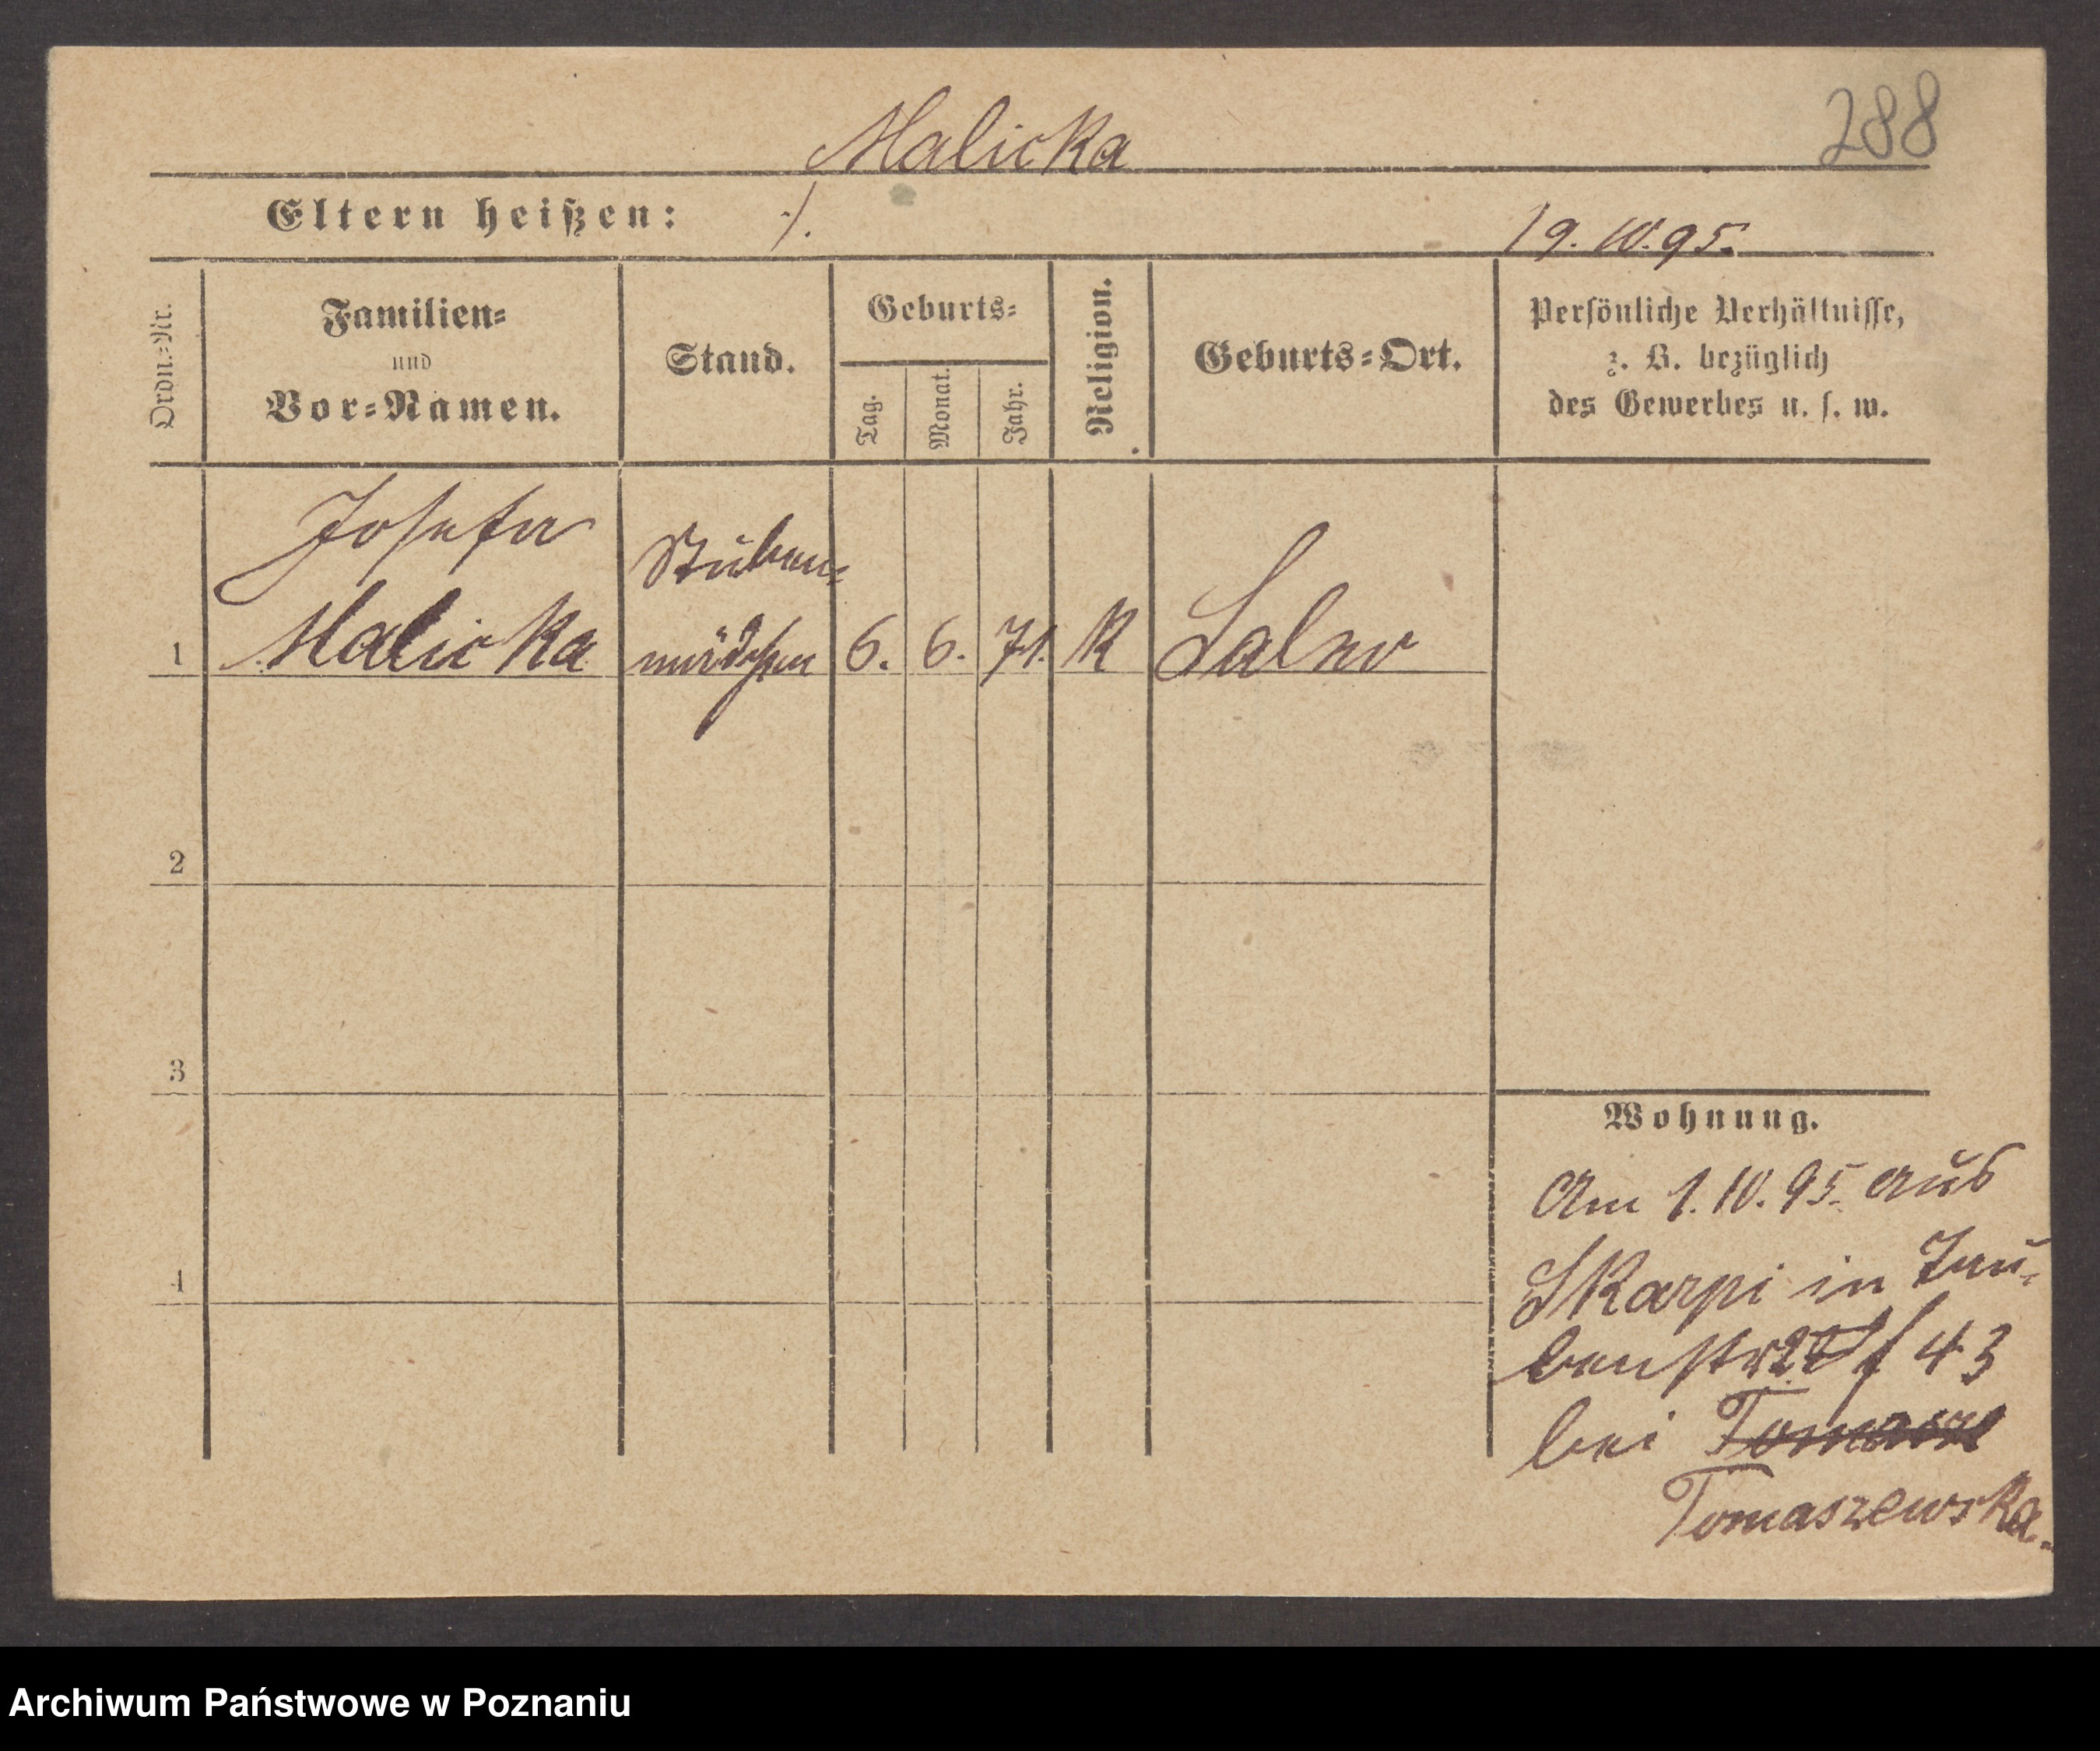 Malicka
288
Eltern heißen: ./.
19.10.95.
Ordn.=Nr.
Familien=
und
Vor=Namen.
Stand.
Geburts=
Tag.
Monat.
Jahr.
Religion.
Geburts=Ort.
Persönliche Verhältnisse,
z. B. bezüglich
des Gewerbes u. s. w.
Josefa
Stuben=
1 Malicka mädchen 6. 6. 71. K Salno
2
3
4
Wohnung.
Am 1.10.95. aus
Skarpi in Tau=
benstr 43
bei Tomasze
Tomaszewska.
Archiwum Państwowe w Poznaniu